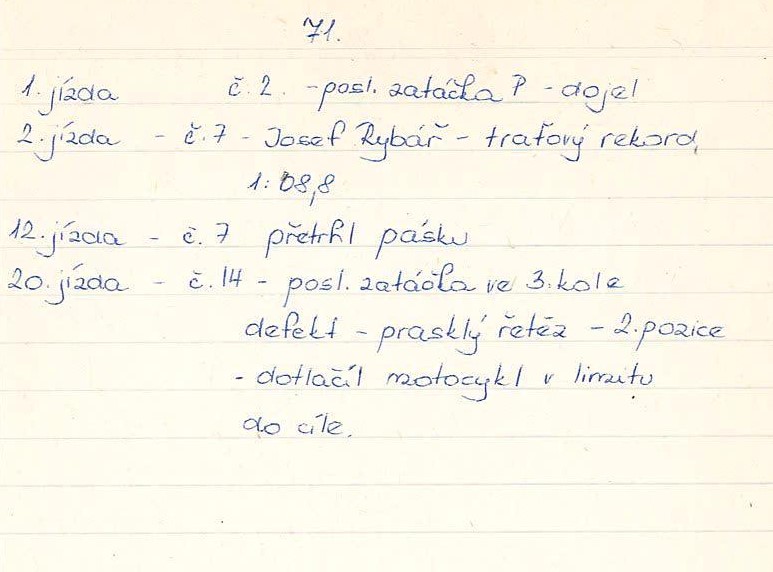 71.
1. jízda č. 2. - posl. zatáčka P - dojel
2. jízda - č. 7 - Josef Rybář - traťový rekord
1:08,8
12. jízda - č. 7 přetrhl pásku
20. jízda - č. 14 - posl. zatáčka ve 3. kole
defekt - prasklý řetěz - 2. pozice
- dotlačil motocykl v limitu
do cíle.